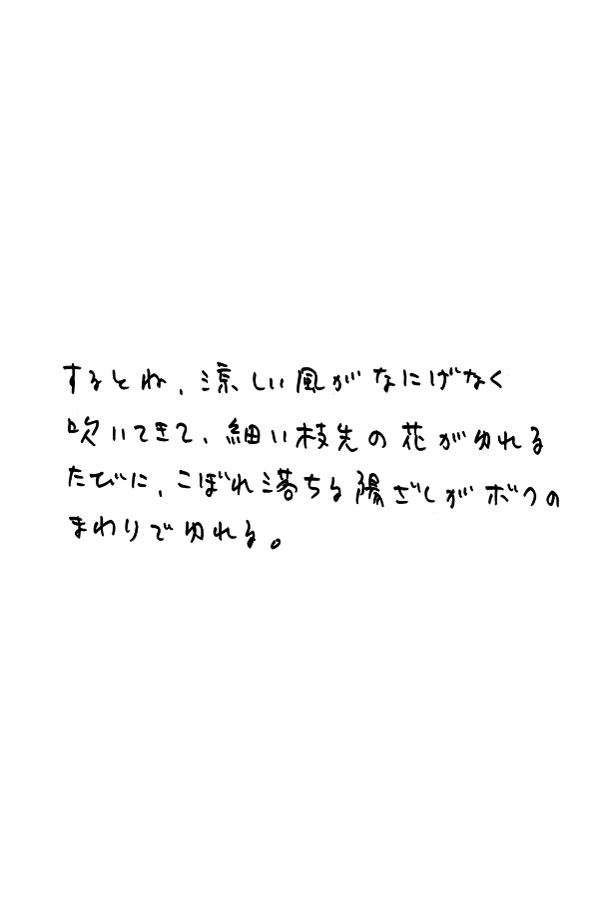 するとね、涼しい風がなにげなく
吹いてきて、細い枝先の花がゆれる
たびに、こぼれ落ちる陽ざしがボクの
まわりでゆれる。